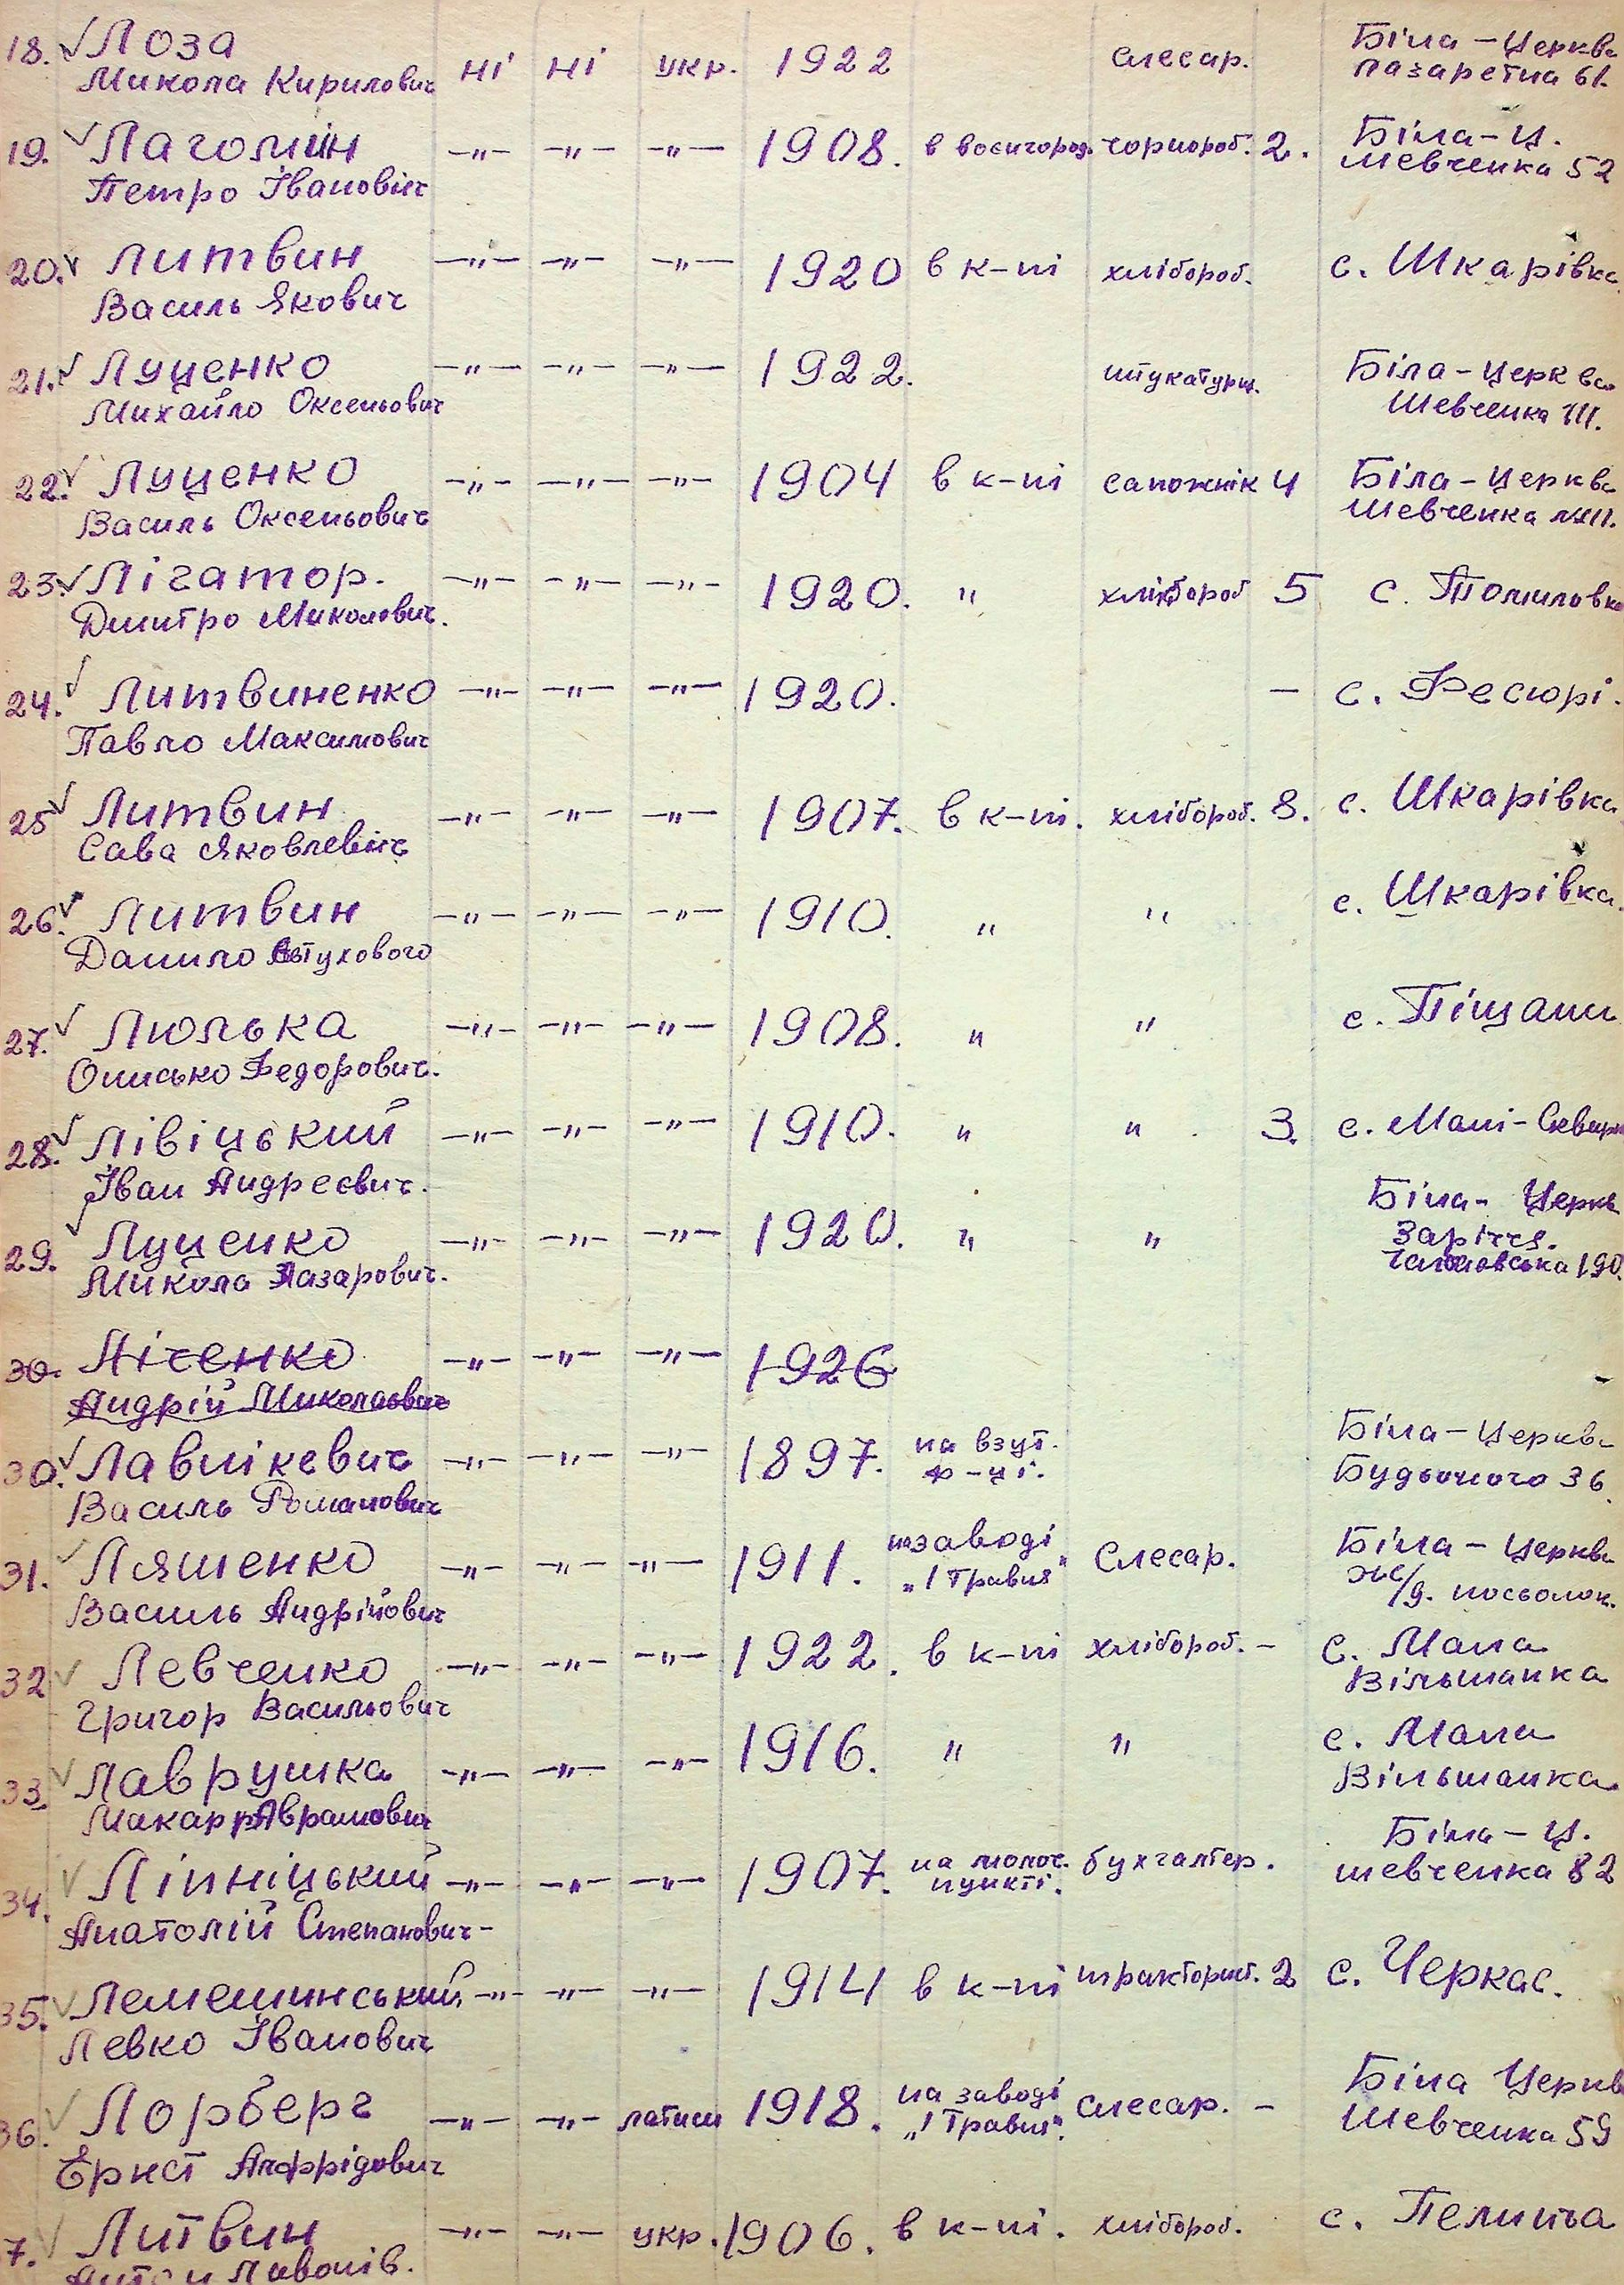 18. ✓ Лоза ні ні укр. 1922 слесар. Біла-Церква
Микола Кирилович Лазаретна 61.
19. ✓ Лагомин —"— —"— —"— 1908. в воєнгород. чорнороб. 2. Біла-Ц.
Петро Іванович Шевченка 52
20. ✓ Литвин —"— —"— —"— 1920 в к-пі хлібороб. с. Шкарівка
Василь Якович
21. ✓ Луценко —"— —"— —"— 1922. штукатурщ. Біла-Церква
Михайло Оксеньович Шевченка 111.
22. ✓ Луценко —"— —"— —"— 1904 в к-пі сапожнік 4 Біла-Церква
Василь Оксеньович Шевченка
23. ✓ Лігатор. —"— —"— —"— 1920. " хлібороб 5 с. Томиловка
Дмитро Миколович.
24. ✓ Литвиненко —"— —"— —"— 1920. — с. Фесюрі.
Павло Максимович
25 ✓ Литвин —"— —"— —"— 1907. в к-пі. хлібороб. 8. с. Шкарівка
Сава Яковлевич
26. ✓ Литвин —"— —"— —"— 1910. " " с. Шкарівка.
Данило
27. ✓ Люлька —"— —"— —"— 1908. " " с. Піщани
Онисько Федорович.
28. ✓ Лівіцький —"— —"— —"— 1910. " " 3. с. Малі-
Іван Андреєвич.
29. ✓ Луценко —"— —"— —"— 1920. " " Біла-Церкв
Микола Лазарович. Заріччя.
190.
30. Ліченко —"— —"— —"— 1926
Андрій Миколаєвич
30. ✓ Лавлікевич —"— —"— —"— 1897. на взут. Біла-Церква
Василь Романович ф-ці. Будьоного 36.
31. ✓ Ляшенко —"— —"— —"— 1911. на заводі Слесар. Біла-Церква
Василь Андрійович „1 Травня" ж/д. посьолок.
32 ✓ Левченко —"— —"— —"— 1922. в к-пі хлібороб. — с. Мала
Григор Васильович Вільшанка
33. ✓ Лаврушка —"— —"— —"— 1916. " " с. Мала
Макар Аврамович Вільшанка
34. ✓ Ліпніцький —"— —"— —"— 1907. на молоч. бухгалтер. Біла-Ц.
Анатолій Степанович- пункті. Шевченка 82
35. ✓ Лемешинський —"— —"— —"— 1914 в к-пі тракторист. 2 с. Черкас.
Левко Іванович
36. ✓ Лорберг —"— —"— латиш 1918. на заводі слесар. — Біла Церкв
Ернст Альфрідович „1 Травня". Шевченка 59
7. ✓ Литвин —"— —"— укр. 1906. в к-пі. хлібороб.